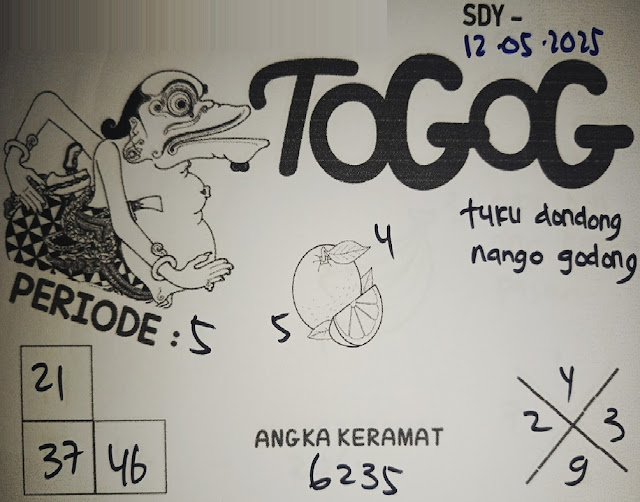 SDY -
12.05.2025
TOGOG
tuku dondong
nango godong
4
5
PERIODE : 5
21
37 46
ANGKA KERAMAT
6235
4
2 3
9